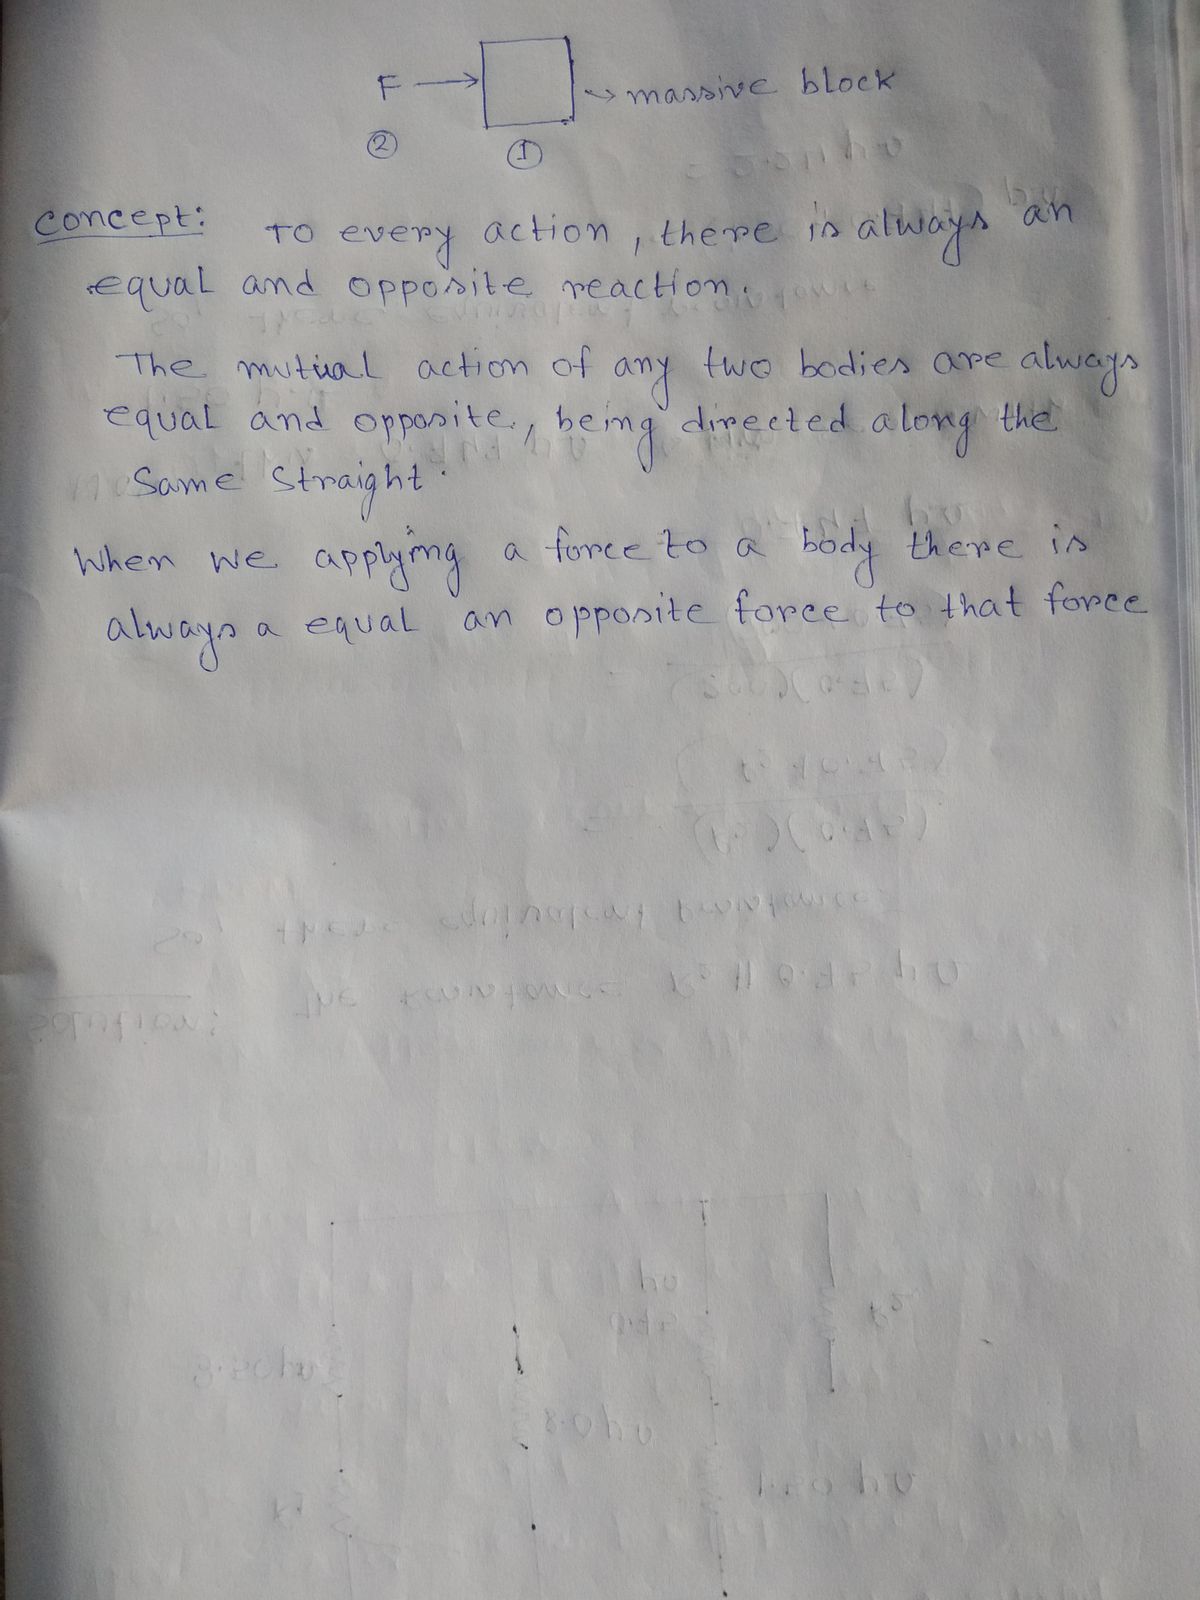 F → massive block
② ①
concept: To every action, there is always an
equal and opposite reaction.
The mutual action of any two bodies are always
equal and opposite, being directed along the
Same straight.
When we applying a force to a body there is
always a equal an opposite force to that force